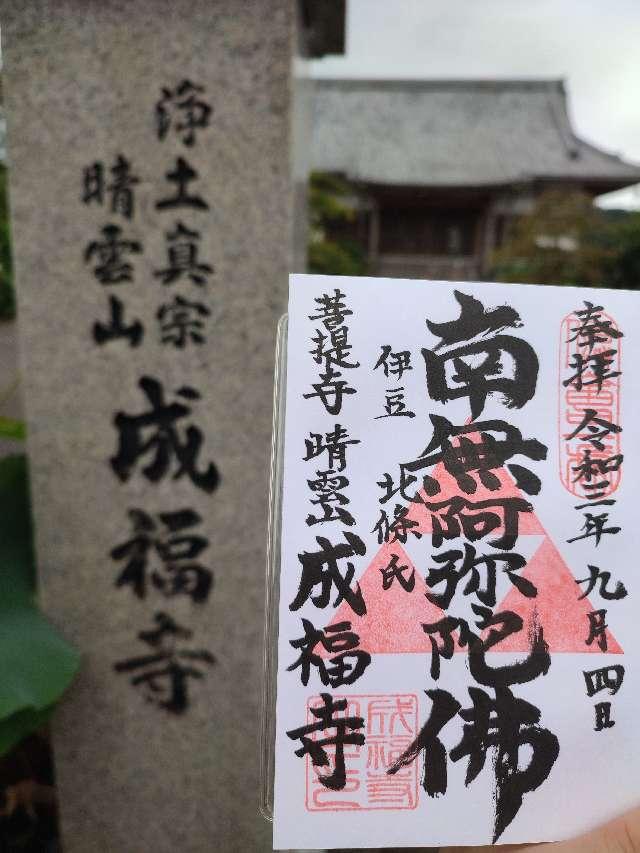 浄土真宗
晴雲山
成福寺
奉拝 令和三年 九月 四日
南無阿弥陀佛
伊豆 北條氏
菩提寺 晴雲山 成福寺
成福寺